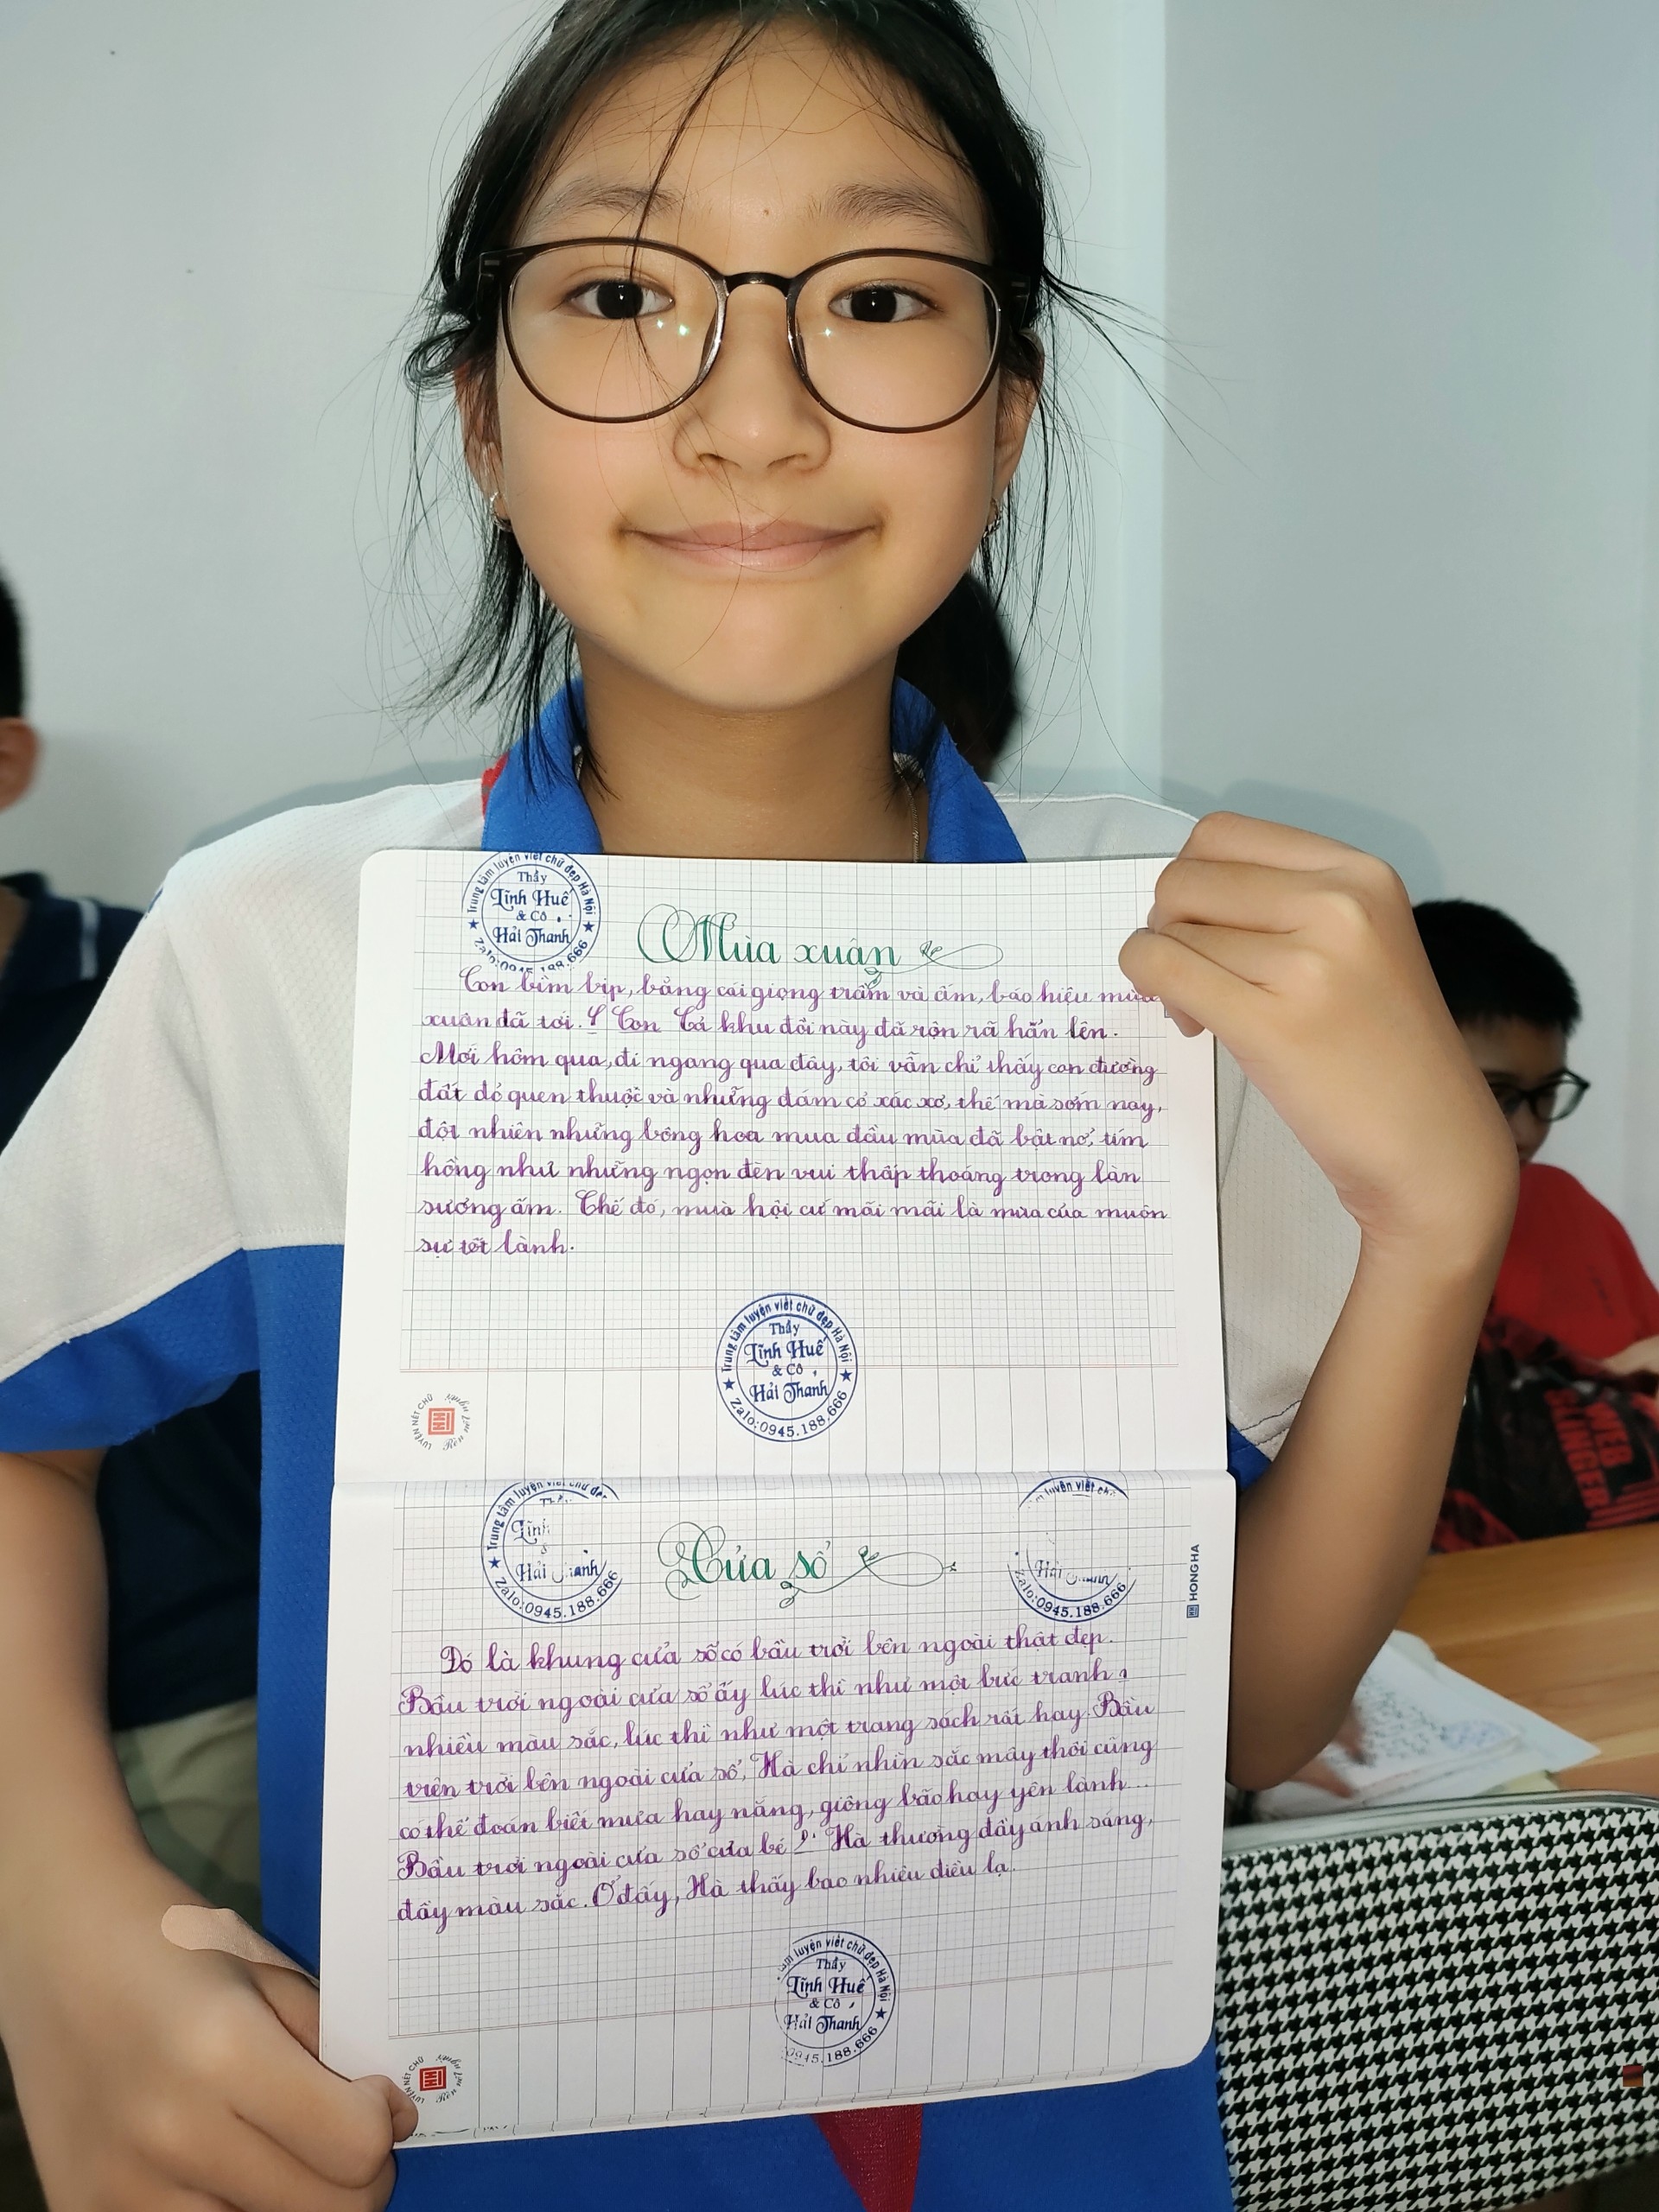 Trung tâm luyện viết chữ đẹp Hà Nội
Thầy
Lĩnh Huế
& Cô
Hải Thanh
Zalo:0945.188.666
Mùa xuân
Con bìm bịp, bằng cái giọng trầm và ấm, báo hiệu mùa
xuân đã tới. Con Cả khu đồi này đã rộn rã hẳn lên.
Mới hôm qua, đi ngang qua đây, tôi vẫn chỉ thấy con đường
đất đỏ quen thuộc và những đám cỏ xác xơ, thế mà sớm nay,
đột nhiên những bông hoa mua đầu mùa đã bật nở, tím
hồng như những ngọn đèn vui thấp thoáng trong làn
sương ấm. Thế đó, muà hội cứ mãi mãi là mùa của muôn
sự tốt lành.
Trung tâm luyện viết chữ đẹp Hà Nội
Thầy
Lĩnh Huế
& Cô
Hải Thanh
Zalo:0945.188.666
LUYỆN NÉT CHỮ
Rèn nết người
Trung tâm luyện viết chữ đẹp
Lĩnh
Hải Thanh
Zalo:0945.188.666
Cửa sổ
luyện viết chữ
Hải
Zalo:0945.188.666
HONG HA
Đó là khung cửa sổ có bầu trời bên ngoài thật đẹp.
Bầu trời ngoài cửa sổ ấy lúc thì như một bức tranh
nhiều màu sắc, lúc thì như một trang sách rất hay. Bầu
trên trời bên ngoài cửa sổ, Hà chỉ nhìn sắc mây thôi cũng
có thể đoán biết mưa hay nắng, giông bão hay yên lành...
Bầu trời ngoài cửa sổ của bé Hà thường đầy ánh sáng,
đầy màu sắc. Ở đấy, Hà thấy bao nhiêu điều lạ.
tâm luyện viết chữ đẹp Hà Nội
Thầy
Lĩnh Huế
& Cô
Hải Thanh
0945.188.666
LUYỆN NÉT CHỮ
Rèn nết người
WEB
SLINGER